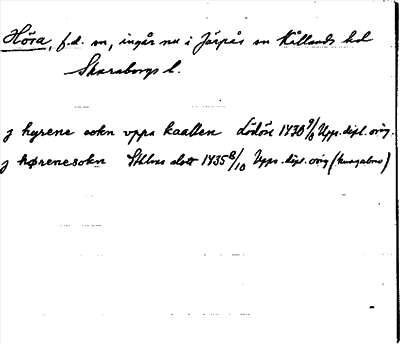 Höra, f.d. sn, ingår nu i Järpås sn Kållands hd
Skaraborgs l.
j hyrene sokn vppa kaallen Lödöse 1430 9/8 Upps. dipl. orig.
j hørenesokn Sthlms slott 1435 8/10 Upps. dipl. orig (kungabrev)